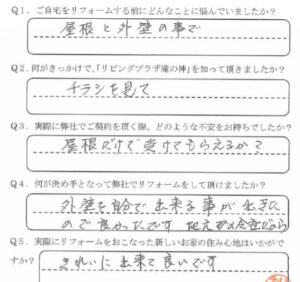 Q1．ご自宅をリフォームする前にどんなことに悩んでいましたか？
屋根と外壁の事で
Q2．何がきっかけで、「リビングプラザ滝の神」を知って頂きましたか？
チラシを見て
Q3．実際に弊社でご契約を頂く際、どのような不安をお持ちでしたか？
屋根だけで受けてもらえるか？
Q4．何が決め手となって弊社でリフォームをして頂けましたか？
外壁を自分で出来る事が出来た
ので良かったです 地元の会社だから
Q5．実際にリフォームをおこなった新しいお家の住み心地はいかがで
すか？
きれいに出来て良いです